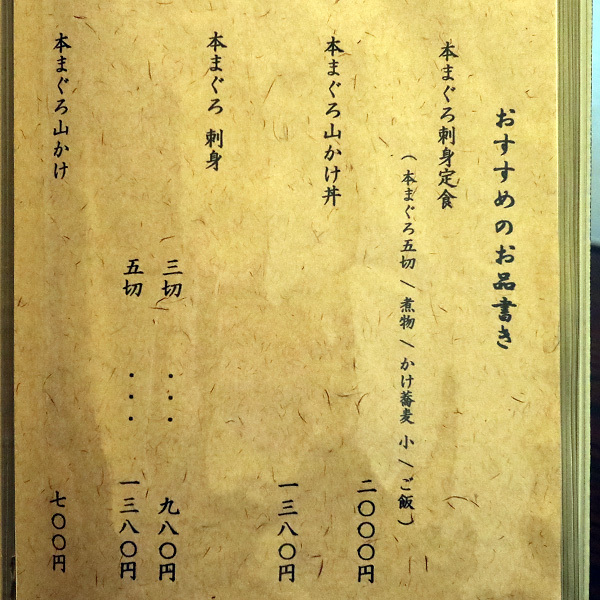 おすすめのお品書き
本まぐろ刺身定食
（本まぐろ五切／煮物／かけ蕎麦 小／ご飯）
二〇〇〇円
本まぐろ山かけ丼
一三八〇円
本まぐろ 刺身
三切 ・・・ 九八〇円
五切 ・・・ 一三八〇円
本まぐろ山かけ
七〇〇円